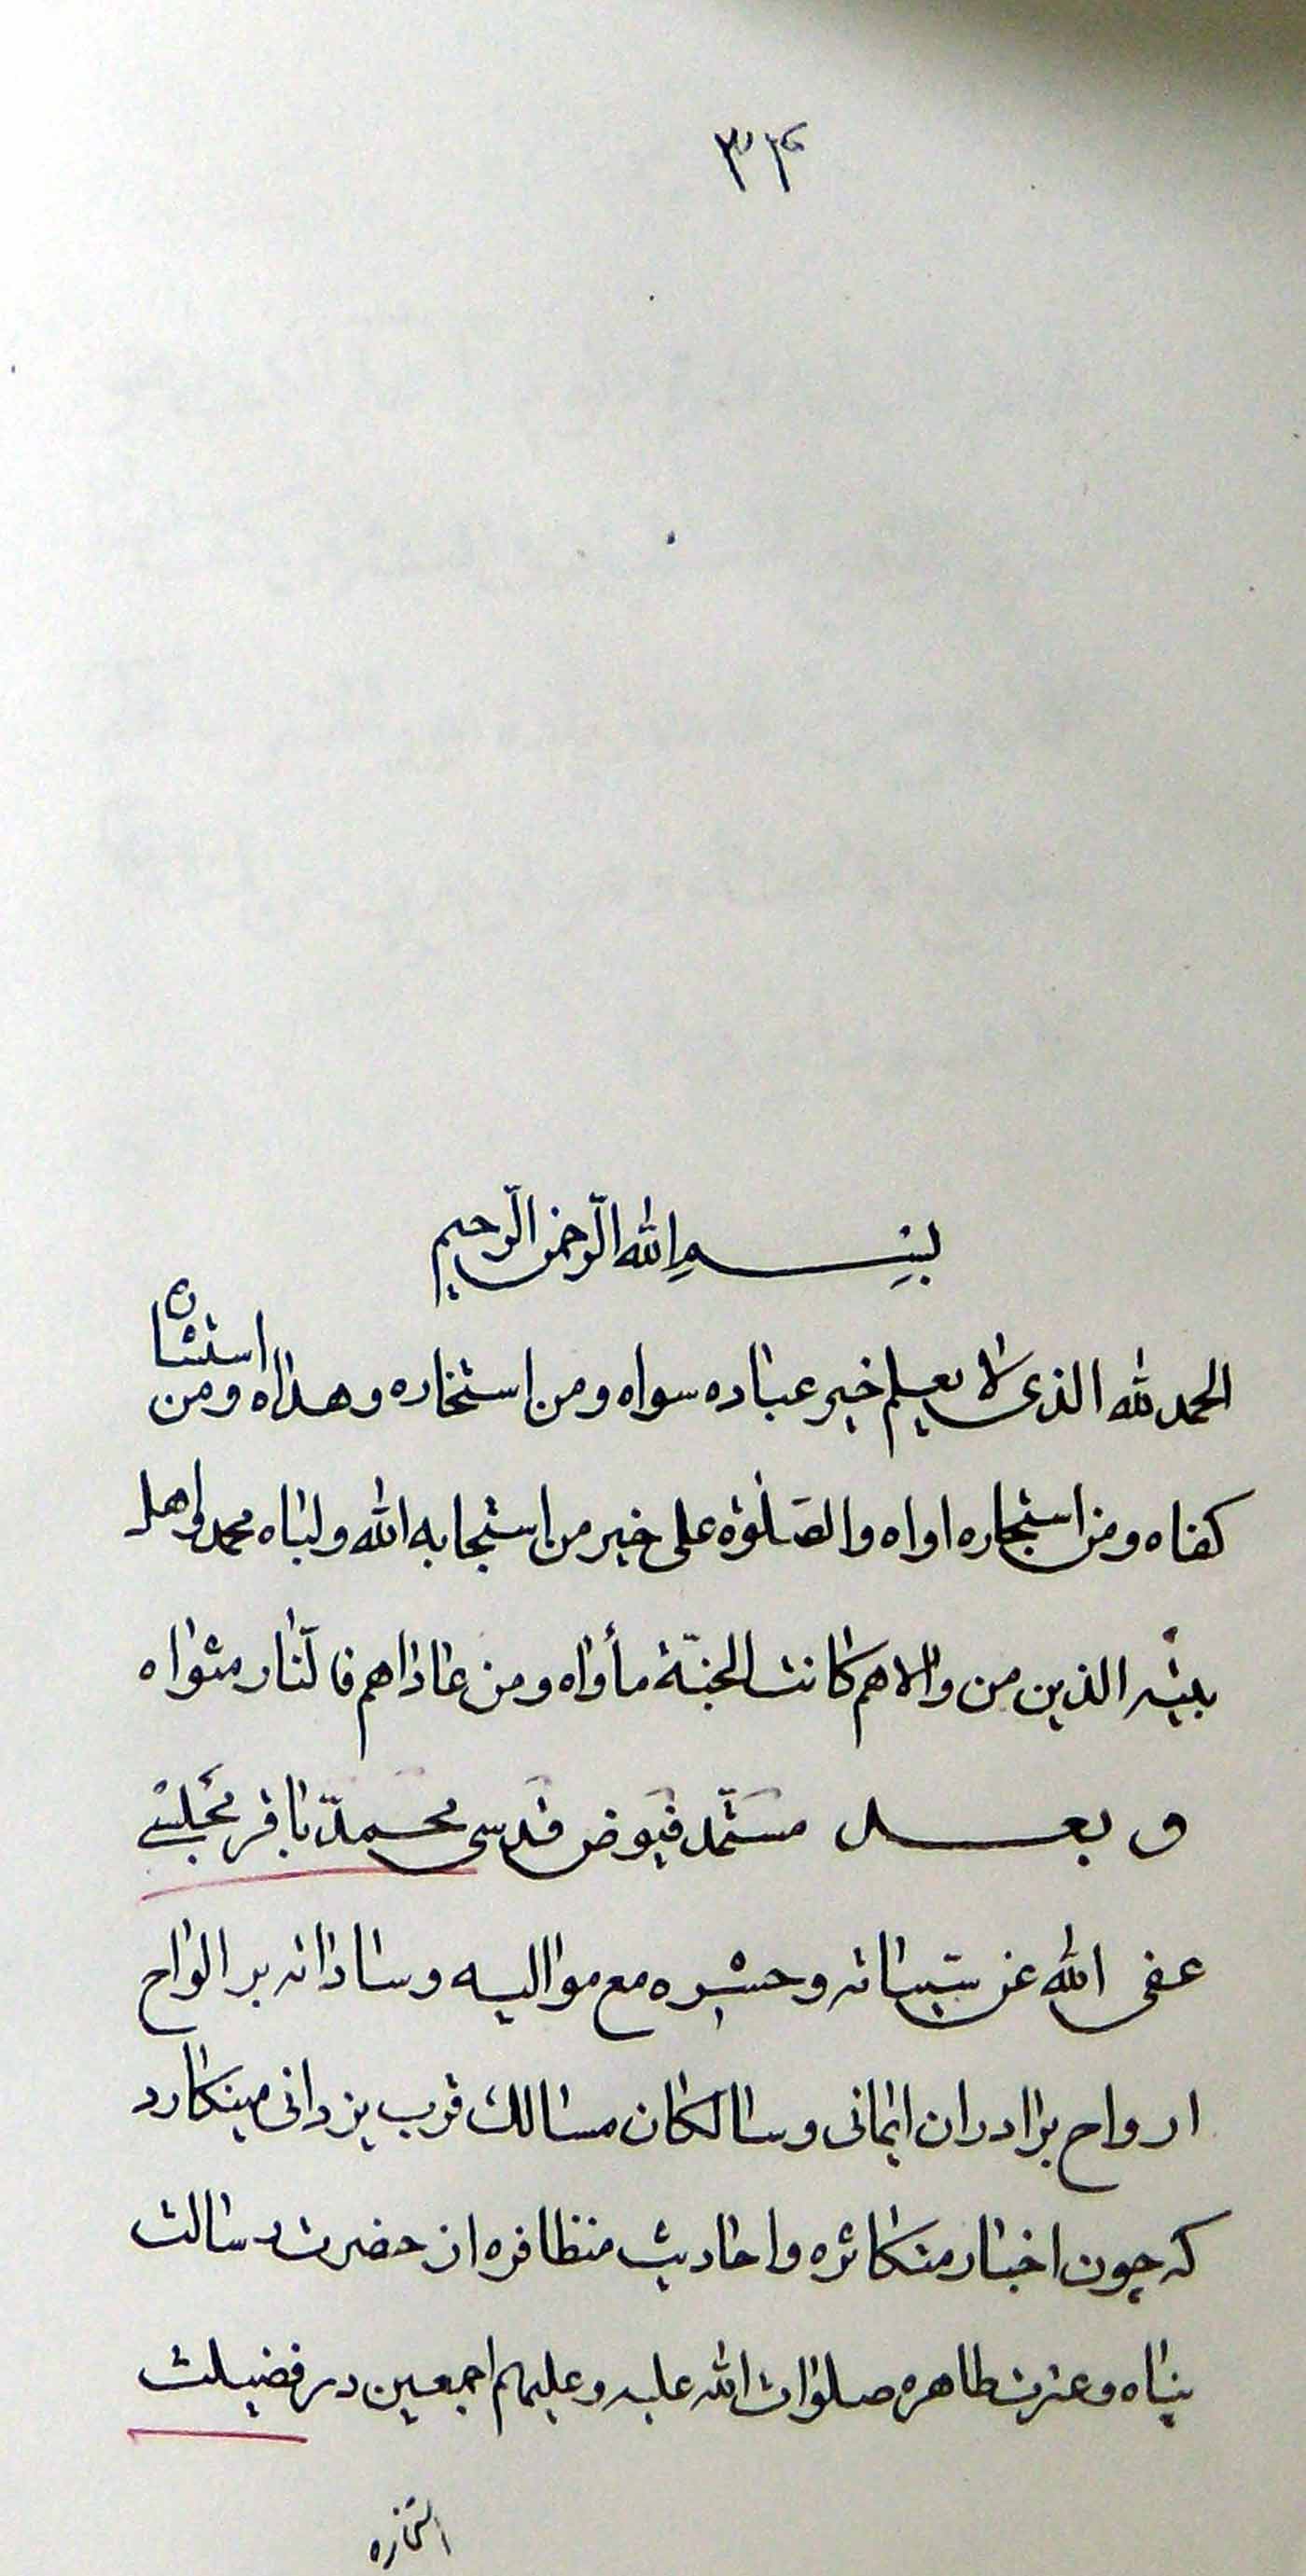 ۳۴
بسم الله الرحمن الرحیم
الحمد لله الذی لا یعلم خیر عباده سواه ومن استخاره و هداه ومن استشاره
کفاه ومن استجاره اواه والصلوة علی خیر من استجابه الله ولباه محمد واهل
بیته الذین من والاهم کانت الجنة مأواه ومن عاداهم فالنار مثواه
و بعد مستمد فیوض قدسی محمد باقر مجلسی
عفی الله عن سیئاته وحشره مع موالیه وساداته بر الواح
ارواح برادران ایمانی وسالکان مسالک قرب یزدانی مینکارد
که چون اخبار متکاثره واحادیث متظافره از حضرت رسالت
پناه وعترت طاهره صلوات الله علیه وعلیهم اجمعین در فضیلت
استخاره